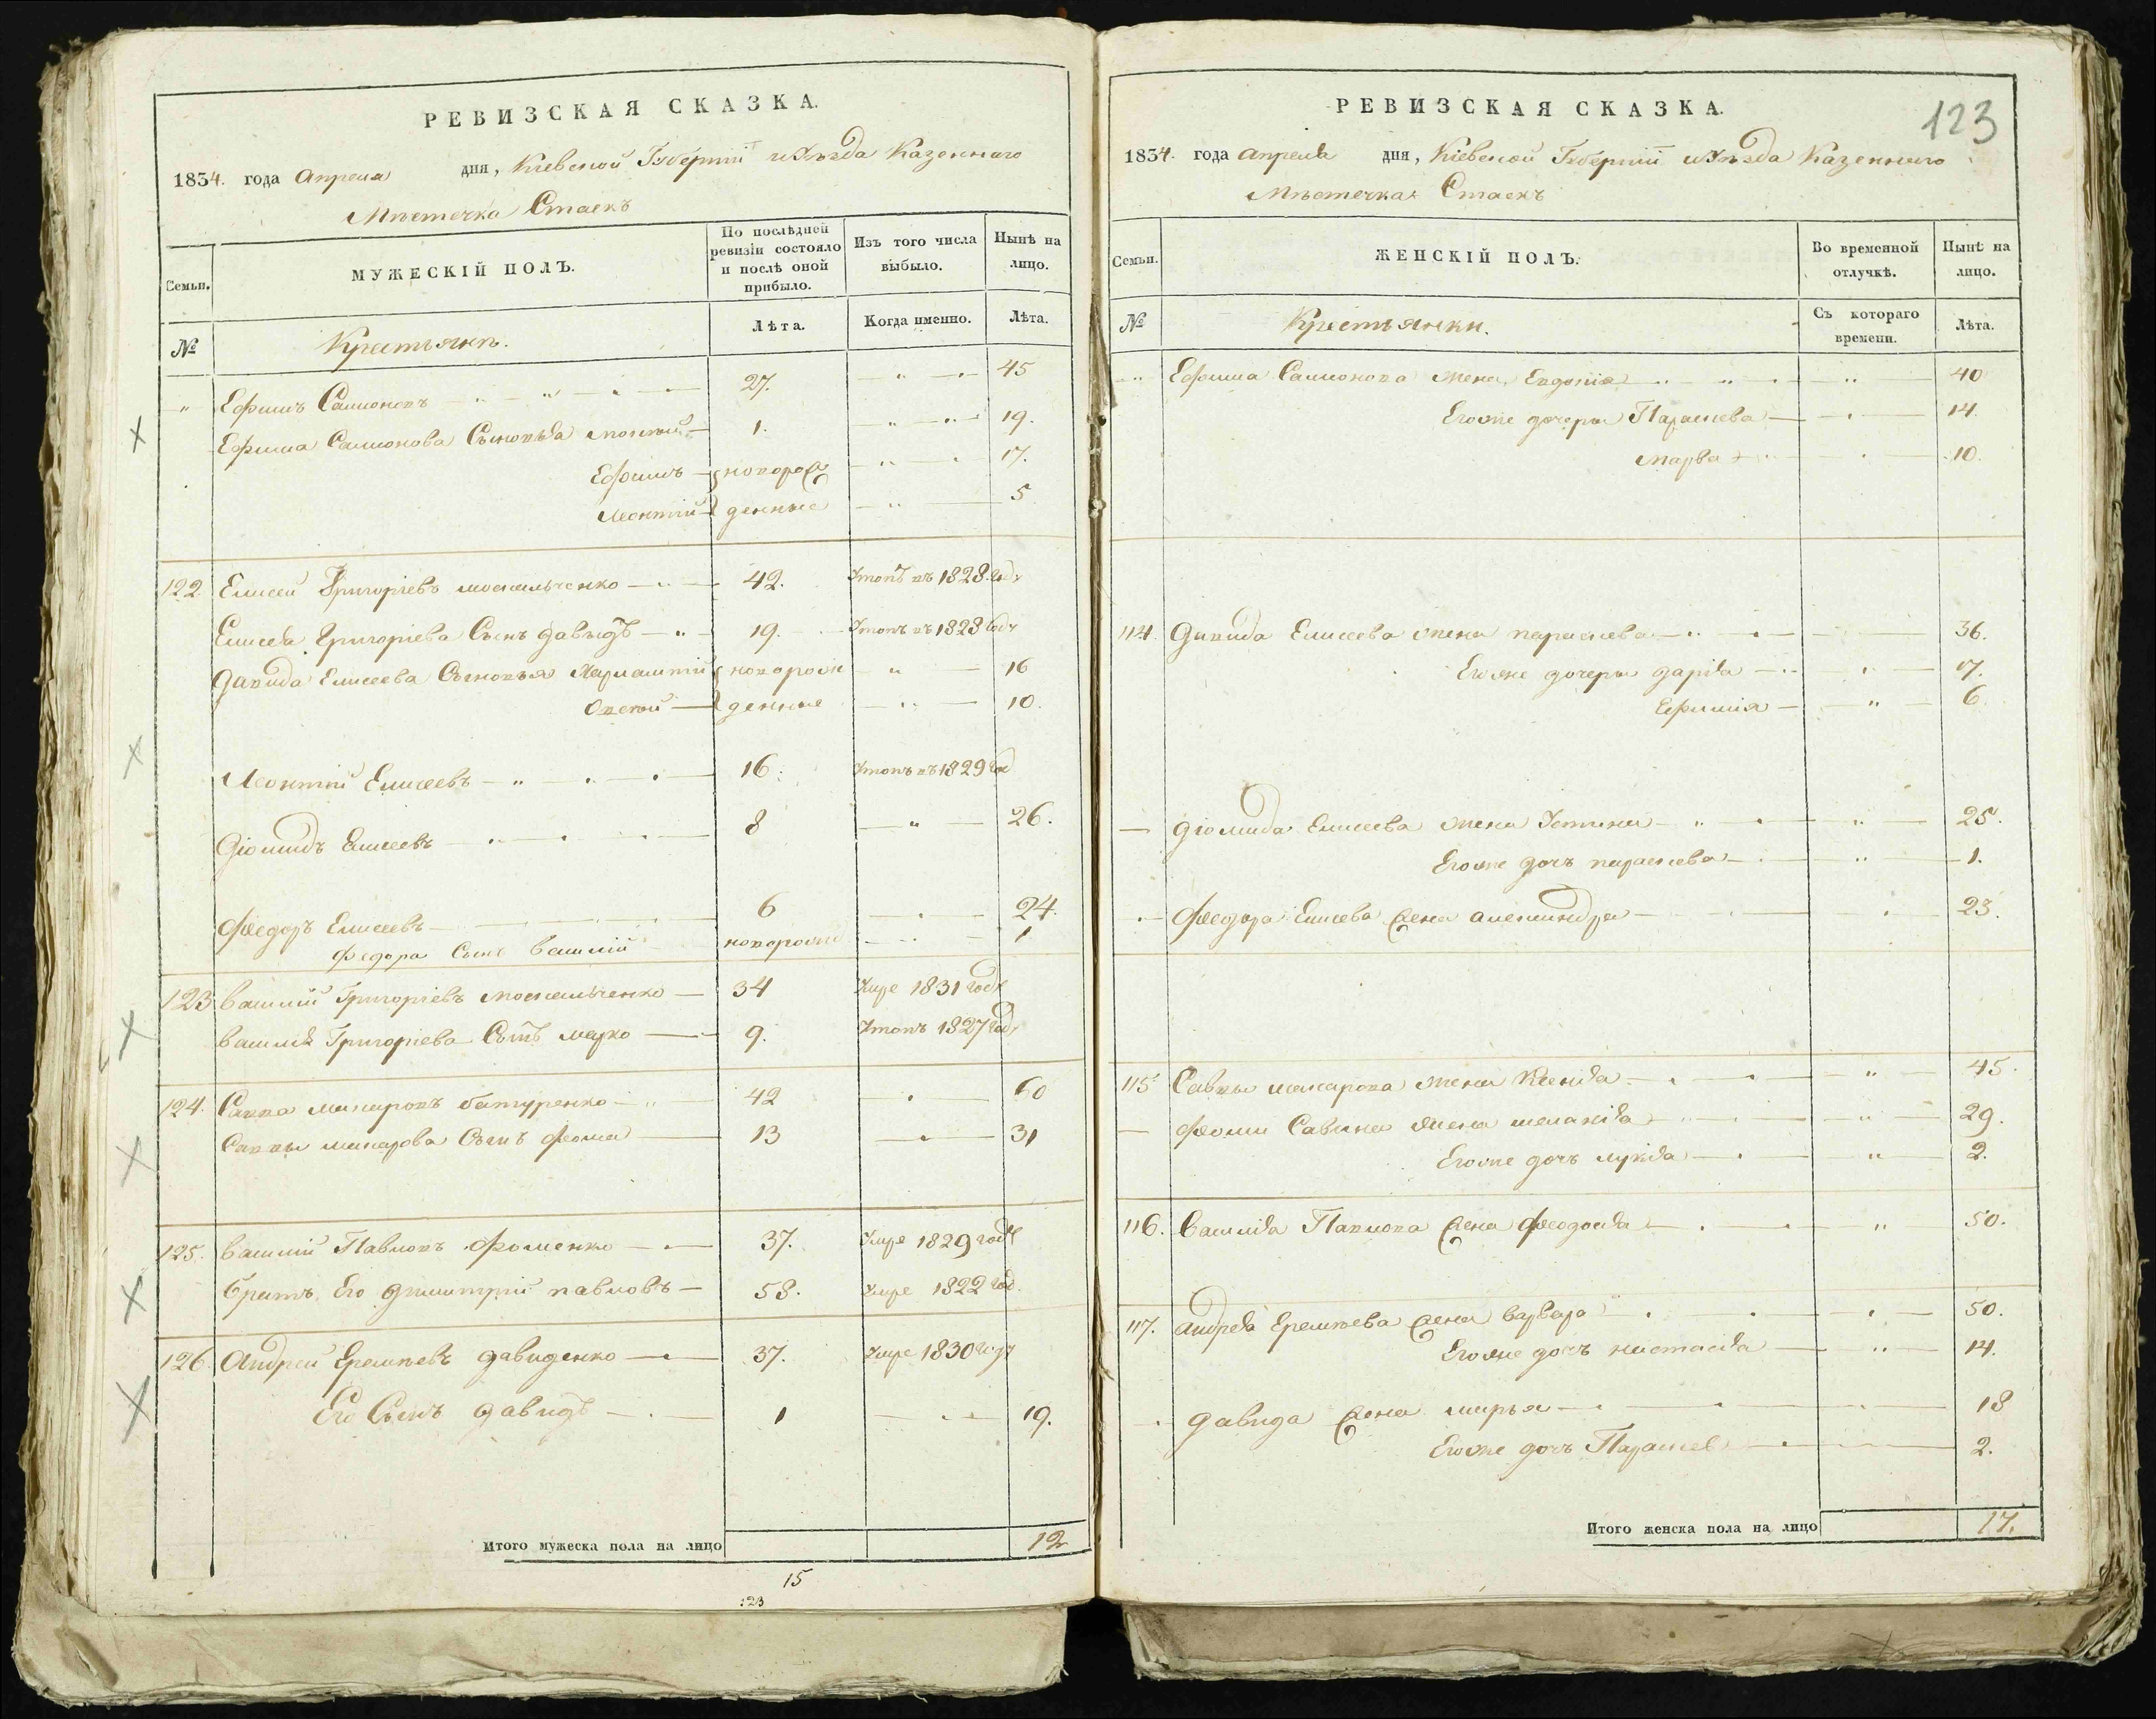 РЕВИЗСКАЯ СКАЗКА.
1834. года Апреля дня, Кіевской Губерніи и Уѣзда Казеннаго
Мѣстечка Стаекъ
Семьи.
МУЖЕСКІЙ ПОЛЪ.
По послѣдней ревизіи состояло и послѣ оной прибыло.
Изъ того числа выбыло.
Нынѣ на лицо.
№
Крестьяне.
Лѣта.
Когда именно.
Лѣта.
" Ефимъ Самионовъ 27. 45
Ефима Самионова Сыновья 1. 19.
Ефимъ новорож 17.
Леонтій денные 5
122 Елисей Григоріевъ москальченко 42. 1828 году
Елисея Григоріева Сынъ давыдъ 19. 1828 году
Давида Елисеева Сыновья Харлампій новорож 16
денные 10.
Леонтій Елисеевъ 16. 1829 год
Діомидъ Елисеевъ 8 26.
Федоръ Елисеевъ 6 24.
Федора Сынъ Василій новорожд 1
123 Василій Григоріевъ москальченко 34 Умре 1831 году
Василія Григоріева Сынъ марко 9. 1827 году
124. Савва макаровъ батуренко 42 60
Саввы макарова Сынъ фома 13 31
125. Василій Павловъ фоменко 37. Умре 1829 году
Братъ Его Димитрій павловъ 58. Умре 1822 год.
126. Андрей Еремѣевъ давиденко 37. Умре 1830 году
Его Сынъ давидъ 1 19.
Итого мужеска пола на лицо 12
15
123
РЕВИЗСКАЯ СКАЗКА.
123
1834. года Апреля дня, Кіевской Губерніи и Уѣзда Казеннаго
Мѣстечка Стаекъ
Семьи.
ЖЕНСКІЙ ПОЛЪ.
Во временной отлучкѣ.
Нынѣ на лицо.
№
Крестьянки.
Съ котораго времени.
Лѣта.
Ефима Самионова жена Евдокія 40
Егоже дочери Параскева 14.
марва 10.
114. Давида Елисеева жена параскева 36.
Егоже дочери дарія 17.
Ефимія 6
Діомида Елисеева жена Устина 25.
Егоже дочъ параскева 1.
Федора Елисева жена александра 23.
115 Саввы макарова жена Ксенія 45.
Фомы Савина жена меланія 29.
Егоже дочъ лукія 2.
116. Василія Павлова жена феодосія 50.
117. Андрея Еремѣева жена варвара 50.
Егоже дочъ настасія 14.
давида жена марья 18
Егоже дочъ Параскев 2.
Итого женска пола на лицо 17.